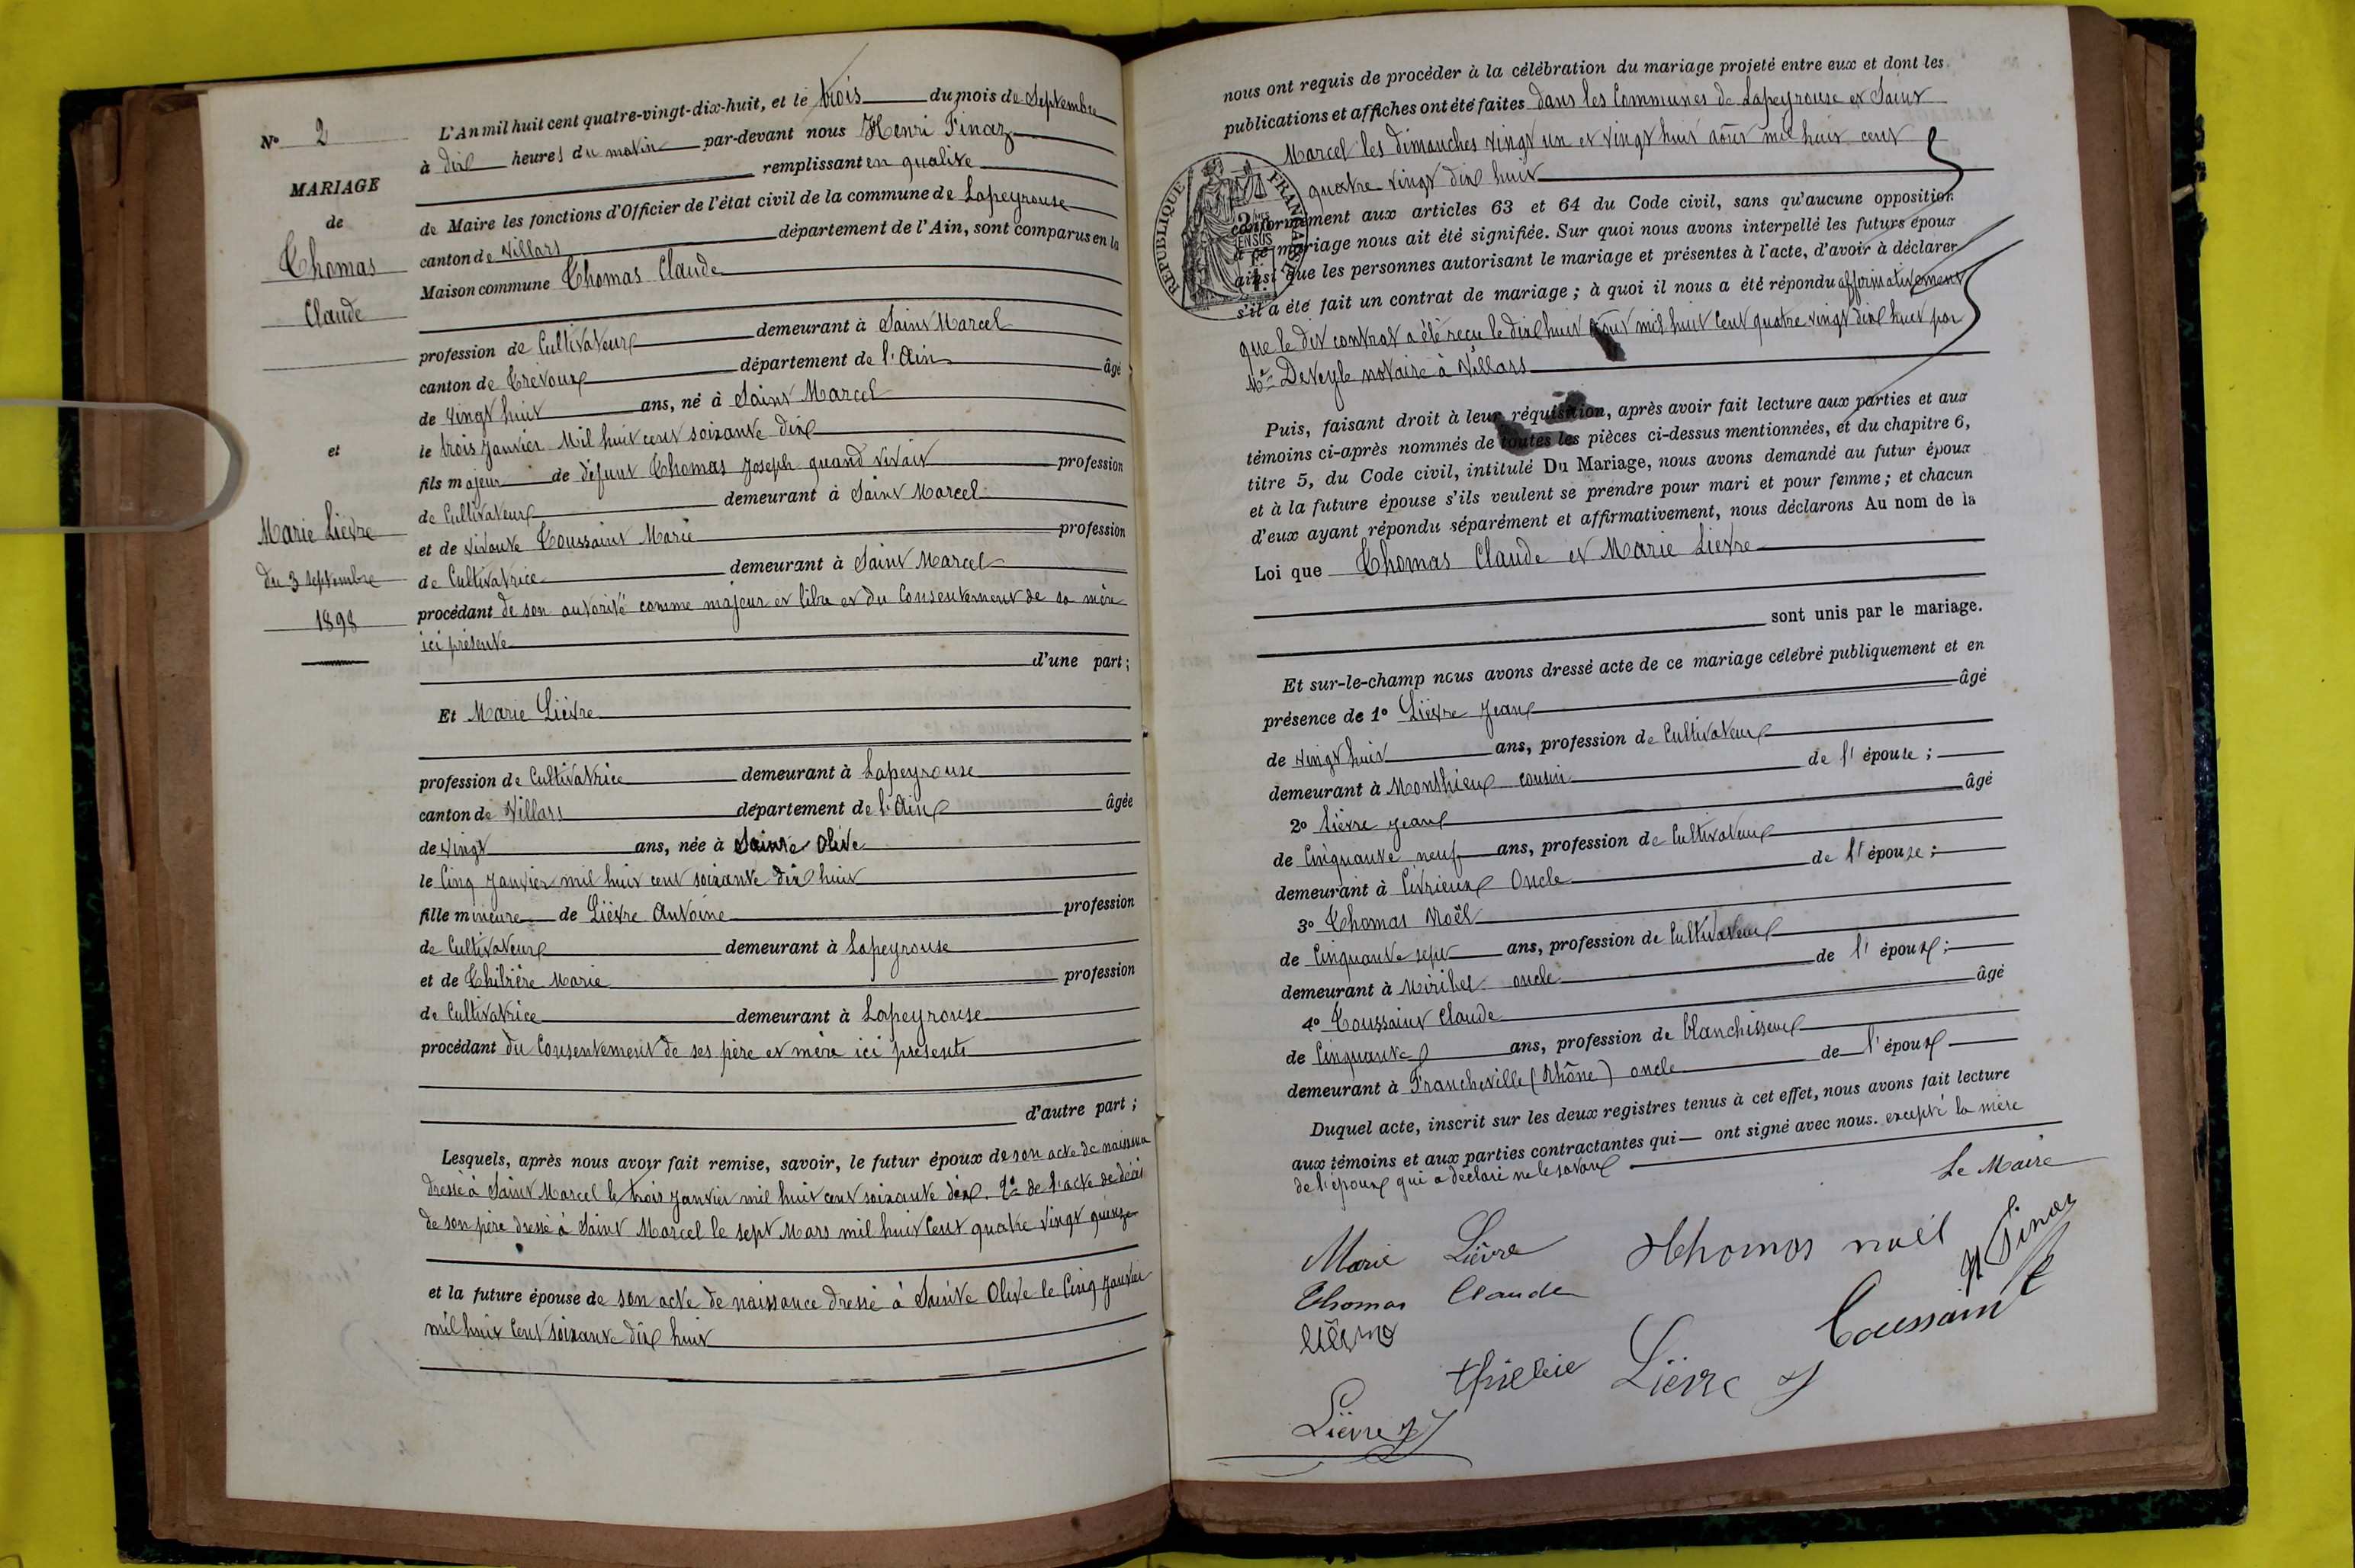 N° 2
MARIAGE
de
Thomas
Claude
et
Marie Lièvre
du 3 septembre
1898
L'An mil huit cent quatre-vingt-dix-huit, et le trois du mois de Septembre
à dix heures du matin par-devant nous Henri Finaz
remplissant en qualité
de Maire les fonctions d'Officier de l'état civil de la commune de Lapeyrouse
canton de Villars département de l'Ain, sont comparus en la
Maison commune Thomas Claude
profession de Cultivateur demeurant à Saint Marcel
canton de Trévoux département de l'Ain âgé
de vingt huit ans, né à Saint Marcel
le trois Janvier Mil huit cent soixante dix
fils majeur de défunt Thomas Joseph quand vivait profession
de Cultivateur demeurant à Saint Marcel
et de vivante Toussaint Marie profession
de Cultivatrice demeurant à Saint Marcel
procédant de son autorité comme majeur et libre et du Consentement de sa mère
ici présente
d'une part ;
Et Marie Lièvre
profession de Cultivatrice demeurant à Lapeyrouse
canton de Villars département de l'Ain âgée
de vingt ans, née à Sainte Olive
le Cinq Janvier mil huit cent soixante dix huit
fille mineure de Lièvre Antoine profession
de Cultivateur demeurant à Lapeyrouse
et de Thibière Marie profession
de Cultivatrice demeurant à Lapeyrouse
procédant du Consentement de ses père et mère ici présents
d'autre part ;
Lesquels, après nous avoir fait remise, savoir, le futur époux de son acte de naissance
dressé à Saint Marcel le trois Janvier mil huit cent soixante dix. 2° de l'acte de décès
de son père dressé à Saint Marcel le sept Mars mil huit Cent quatre vingt quinze
et la future épouse de son acte de naissance dressé à Sainte Olive le Cinq Janvier
mil huit Cent soixante dix huit
nous ont requis de procéder à la célébration du mariage projeté entre eux et dont les
publications et affiches ont été faites dans les Communes de Lapeyrouse et Saint
Marcel les dimanches vingt un et vingt huit août mil huit cent
quatre vingt dix huit
RÉPUBLIQUE FRANÇAISE
conformément aux articles 63 et 64 du Code civil, sans qu'aucune opposition
à ce mariage nous ait été signifiée. Sur quoi nous avons interpellé les futurs époux
ainsi que les personnes autorisant le mariage et présentes à l'acte, d'avoir à déclarer
s'il a été fait un contrat de mariage ; à quoi il nous a été répondu affirmativement
que le dit contrat a été reçu le dix huit août mil huit Cent quatre vingt dix huit par
Me Deveyle notaire à Villars
Puis, faisant droit à leur réquisition, après avoir fait lecture aux parties et aux
témoins ci-après nommés de toutes les pièces ci-dessus mentionnées, et du chapitre 6,
titre 5, du Code civil, intitulé Du Mariage, nous avons demandé au futur époux
et à la future épouse s'ils veulent se prendre pour mari et pour femme ; et chacun
d'eux ayant répondu séparément et affirmativement, nous déclarons Au nom de la
Loi que Thomas Claude et Marie Lièvre
sont unis par le mariage.
Et sur-le-champ nous avons dressé acte de ce mariage célébré publiquement et en
présence de 1° Lièvre Jean âgé
de vingt huit ans, profession de Cultivateur
demeurant à Monthieux cousin de l'épouse ;
2° Lièvre Jean âgé
de Cinquante neuf ans, profession de Cultivateur
demeurant à Civrieux Oncle de l'épouse ;
3° Thomas Noël
de Cinquante sept ans, profession de Cultivateur
demeurant à Miribel oncle de l'époux ;
4° Toussaint Claude âgé
de Cinquante ans, profession de blanchisseur
demeurant à Francheville (Rhône) oncle de l'époux
Duquel acte, inscrit sur les deux registres tenus à cet effet, nous avons fait lecture
aux témoins et aux parties contractantes qui ont signé avec nous. excepté la mère
de l'époux qui a déclaré ne le savoir
Le Maire
Marie Lièvre Thomas noël H Finaz
Thomas Claude
Toussaint
Lièvre
Lièvre